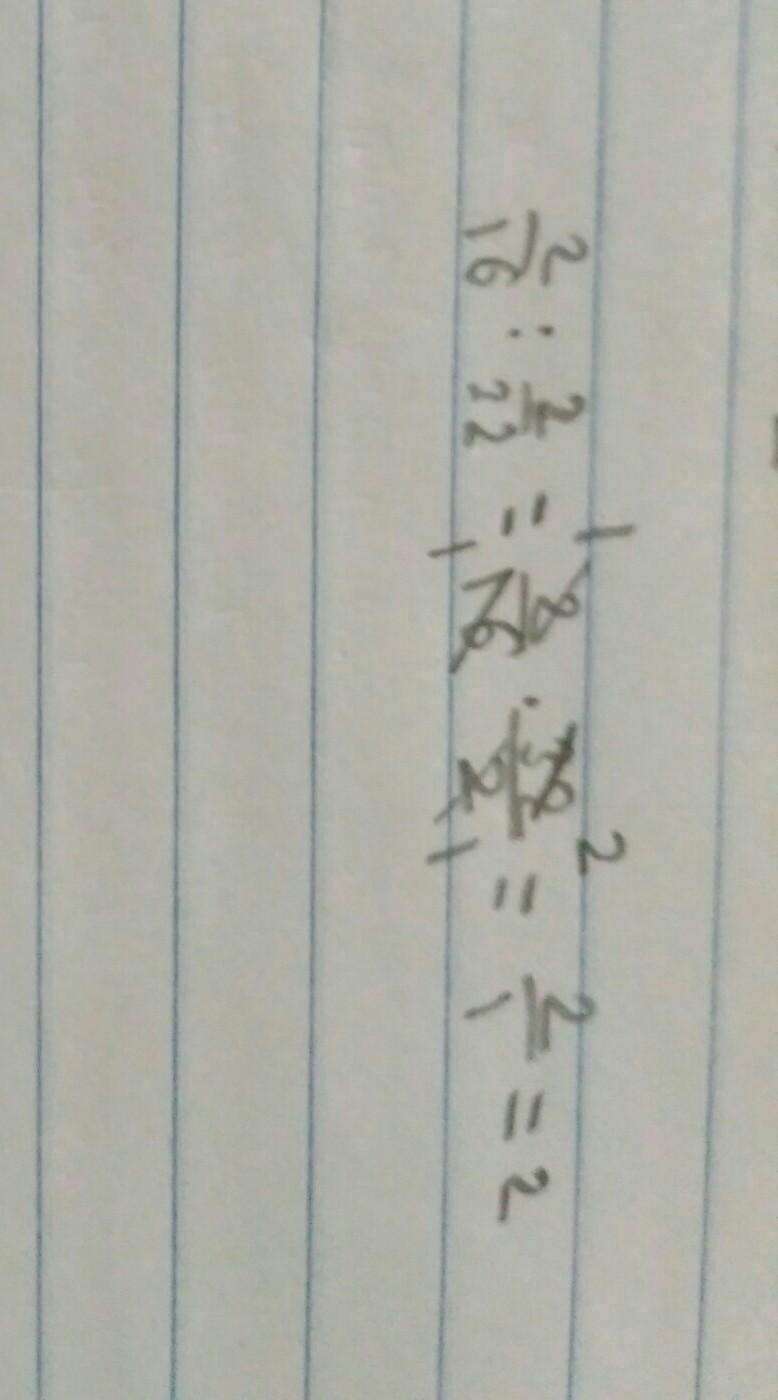 2/16 : 2/32 = 2/16 · 32/2 = 2/1 = 2